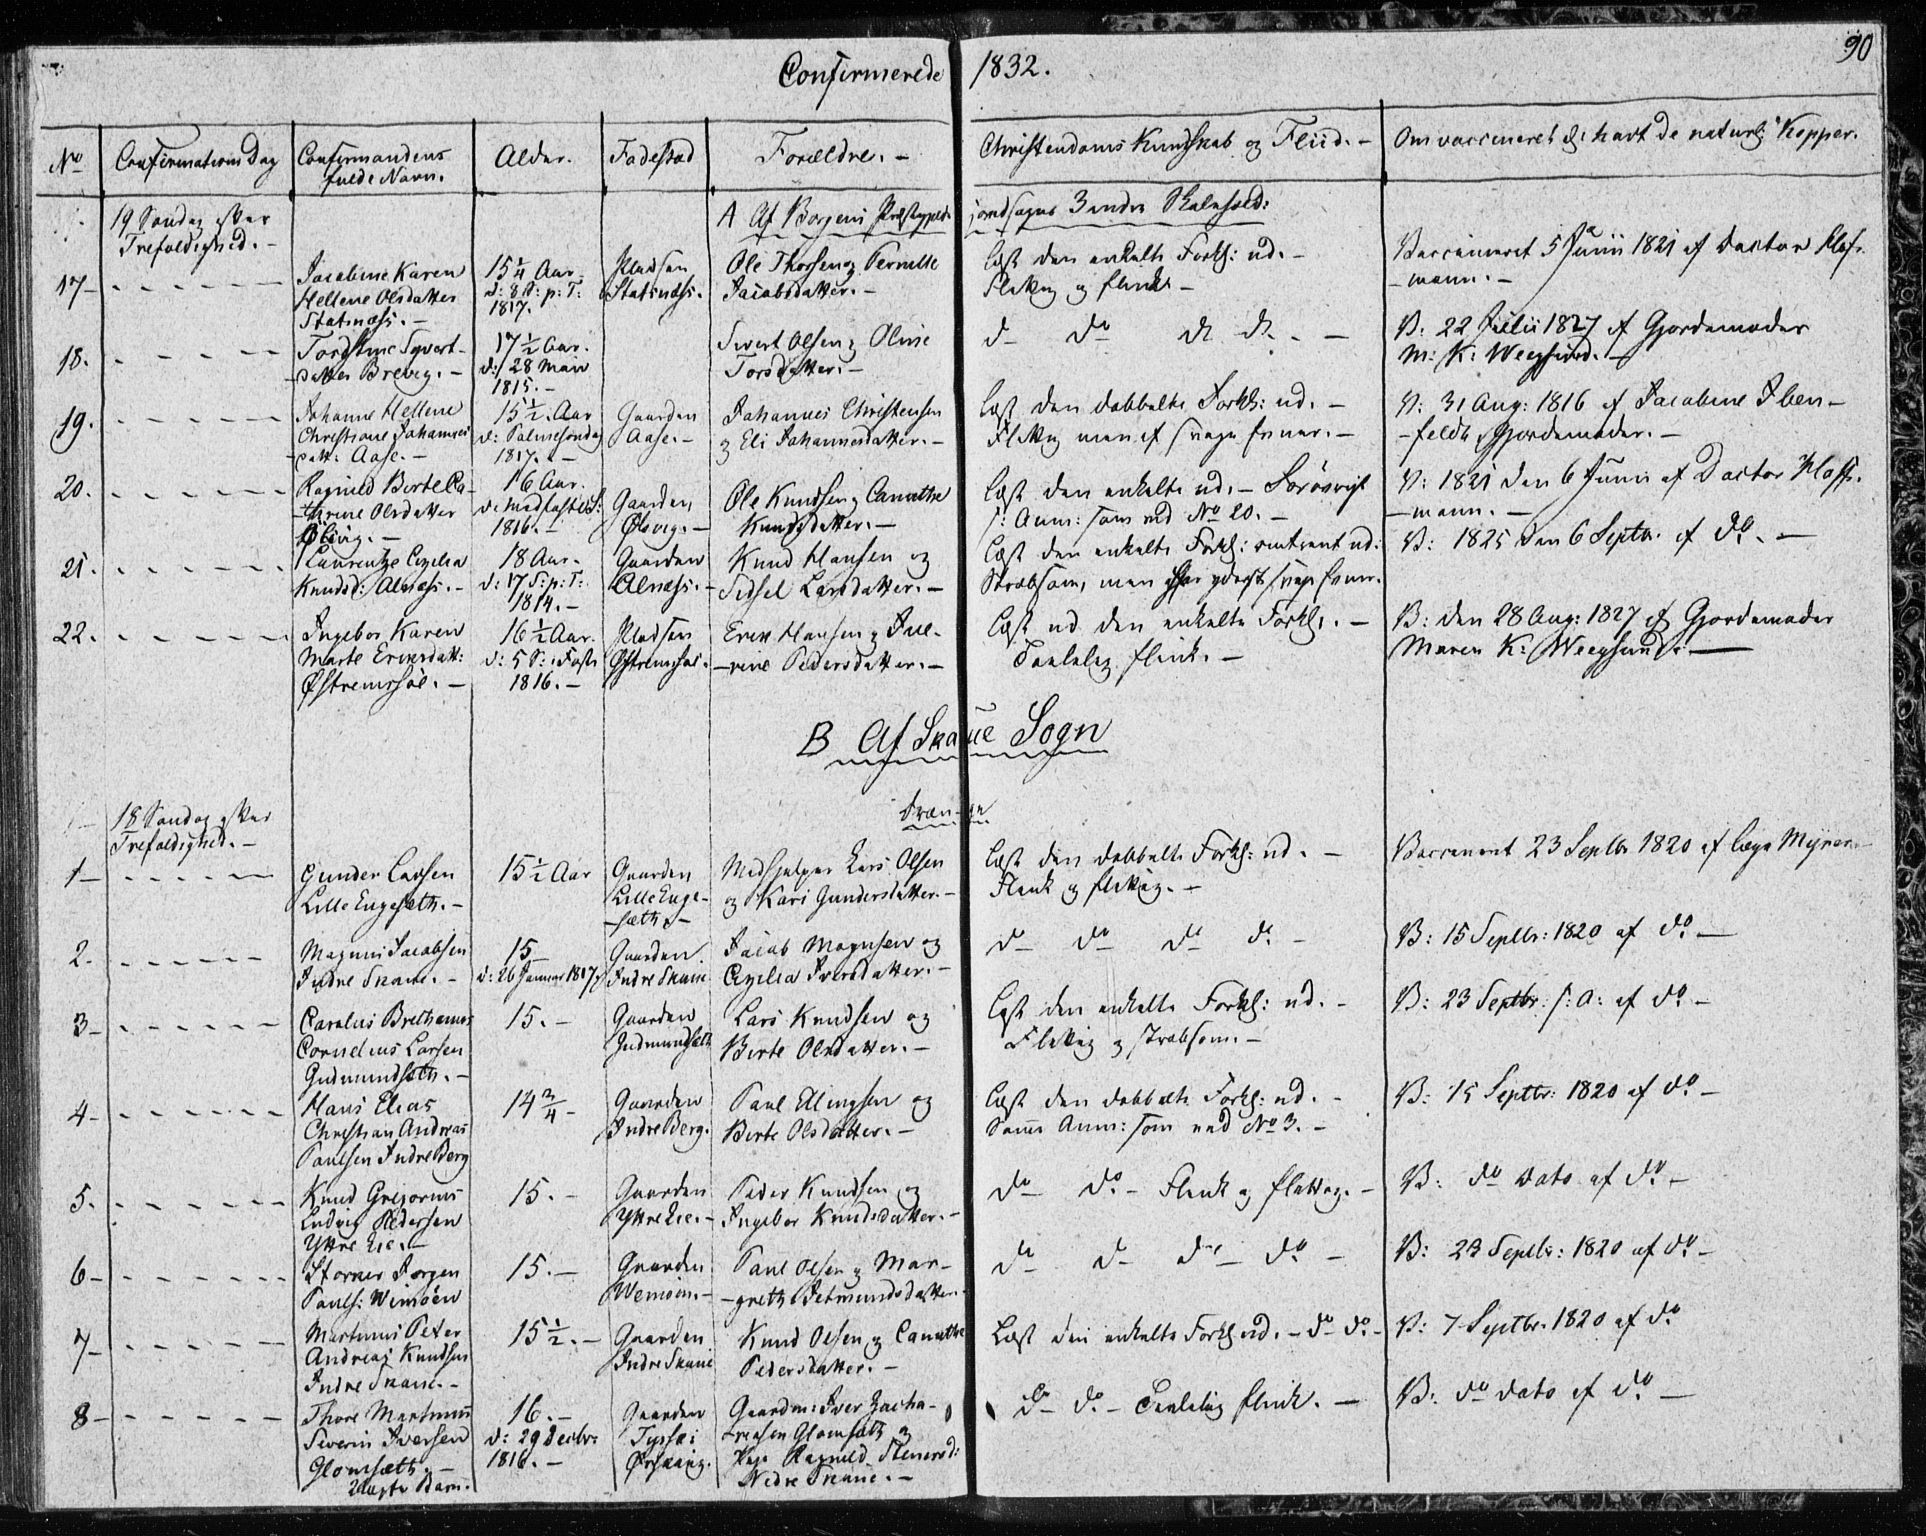 Confirmerede 1832.
90
No
Confirmations Dag
Confirmandens
fulde Navn.
Alder.
Fødested
Forældre. -
Christendoms Kundskab og Fliid. -
Om vaccineret el: havt de naturl: Kopper.
19 Søndag efter
Trefoldighed. -
A Af Borgens Præstegjeld
17 -
Jacobine Karen
Hellene Olsdatter
Statnæss. -
15 1/4 Aar.
d: 8 S: p: T:
1817.
Pladsen
Statnæss.
Ole Thorsen og Pernelle
Jacobsdatter. -
læst den enkelte Forkl: ud. -
Flittig og flink -
Vaccineret 5 Junii 1821 af Doctor Hoff-
-mann. -
18.
Tordstine Syvert-
-datter Brevig. -
17 1/2 Aar.
d: 28 Mai
1815. -
Sivert Olsen og Oline
Torsdatter. -
d - do
V: 22 Julii 1827 af Gjordemoder
M: K: Weegsund. -
19.
Johanne Hellene
Christiane Johannes
datt: Aase. -
15 1/2 Aar
d: Palmesøndag
1817. -
Gaarden
Aase. -
Johannes Christensen
og Eli Johannesdatter. -
læst den dobbelte Forkl: ud. -
Flittig men af svage Evner. -
V: 31 Aug: 1816 af Jacobine Iben-
-feldt, Gjordemoder. -
20.
Ragnild Berte Ca-
-thrine Olsdatter
Ølvig. -
16 Aar.
1816. -
Gaarden
Ølvig. -
Ole Knudsen og Canuthe
Knudsdatter. -
læst den enkelte ud. -
s: Anm: som ved No 20. -
V: 1821 den 6 Junii af Doctor Hoff-
-mann. -
21.
Laurentze Cicilia
Knudsd: Alnæss. -
18 Aar.
d: 17 S: p: T:
1814. -
Gaarden
Alnæss. -
Knud Hansen og
Sidsel Larsdatter. -
læst den enkelte Forkl: omtrent ud:
Stræbsom, men har yderst svage Evner.
V: 1825 den 6 Septbr. af do. -
22.
Ingebor Karen
Marte Ericsdatt:
Østremsøe. -
16 1/2 Aar.
d: 5 S: i Faste
1816. -
Pladsen
Østremsøe. -
Erik Hansen og Jue-
-rine Pedersdatter. -
læst ud den enkelte Forkl. -
Taalelig flink. -
V: den 28 Aug: 1827 af Gjordemoder
Maren K: Weegsund. -
B Af Skaue Sogn
18 Søndag efter
Trefoldighed. -
Drenge
1 -
Gunder Larsen
Lille Engesæth. -
15 1/2 Aar
Gaarden
Lille Enge-
-sæth. -
Medhjelper Lars Olsen
og Kari Gundersdatter. -
læst den dobbelte Forkl: ud. -
Flink og flittig. -
Vaccineret 23 Septbr 1820 af Læge Meyner. -
2.
Magnus Jacobsen
Indre Skaue. -
15 -
d: 26 Januar 1817
Gaarden
Indre Skaue
Jacob Magnsen og
Cicilia Iversdatter. -
do do do do -
V: 15 Septbr: 1820 af do -
3 -
Carolus Brethames
Cornelius Larsen
Gudmundsæth. -
15. -
Gaarden
Gudmundsæth
Lars Knudsen og
Berte Olsdatter. -
læst den enkelte Forkl: ud. -
Flittig og stræbsom. -
V: 23 Septbr: s: A: af do. -
4 -
Hans Elias
Christian Andreas
Paulsen Indre Berg
14 3/4 -
Gaarden
Indre Berg.
Paul Elingsen og
Berte Olsdatter. -
læst den dobbelte Forkl: ud. -
Samme Anm: som ved No 3. -
V: 15 Septbr: 1820 af do -
5.
Knud Gregorius
Ludvig Pedersen
Yttre Lie. -
15. -
Gaarden
Yttre Lie. -
Peder Knudsen og
Ingebor Knudsdatter. -
do do. - Flink og flittig. -
V: do Dato af do. -
6 -
Størner Jørgen
Pauls: Wemøen
15. -
Gaarden
Wemøen. -
Paul Olsen og Mar-
-grethe Jetmundsdatter. -
do do do do -
V: 23 Septbr: 1820 af do -
7 -
Martinus Peter
Andreas Knudsen
Indre Skaue. -
15 1/2. -
Gaarden
Indre Skaue
Knud Olsen og Canuthe
Pedersdatter. -
Læst den enkelte Forkl ud. - do do. -
V: 7 Septbr. 1820 af do
8 -
Thore Martinus
Severin Iversen
Glomsæth. -
Uægte Barn.
16. -
d: 29 Decbr:
1816. -
Gaarden
Gaardm: Iver Zacha-
-riasen Glomsæth og
Pige Ragnild Stenersd:
Nedre Skaue. -
do do. - Taalelig flink. -
V: do Dato af do -